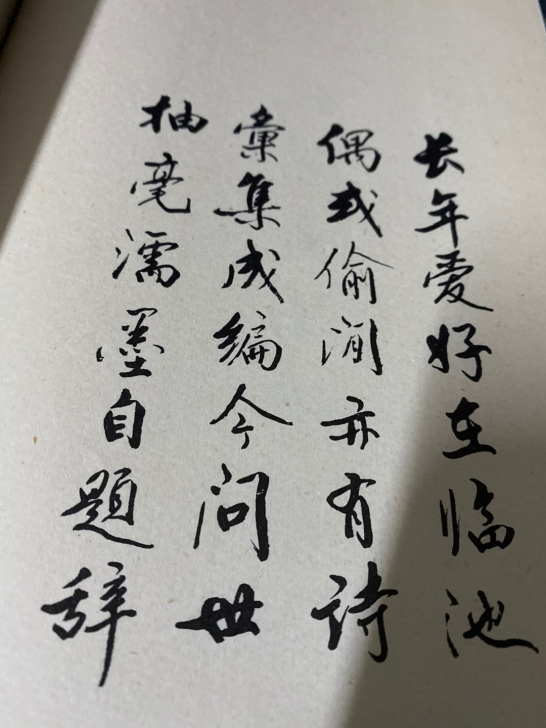 长年爱好在临池
偶或偷闲亦有诗
汇集成编今问世
抽毫濡墨自题辞